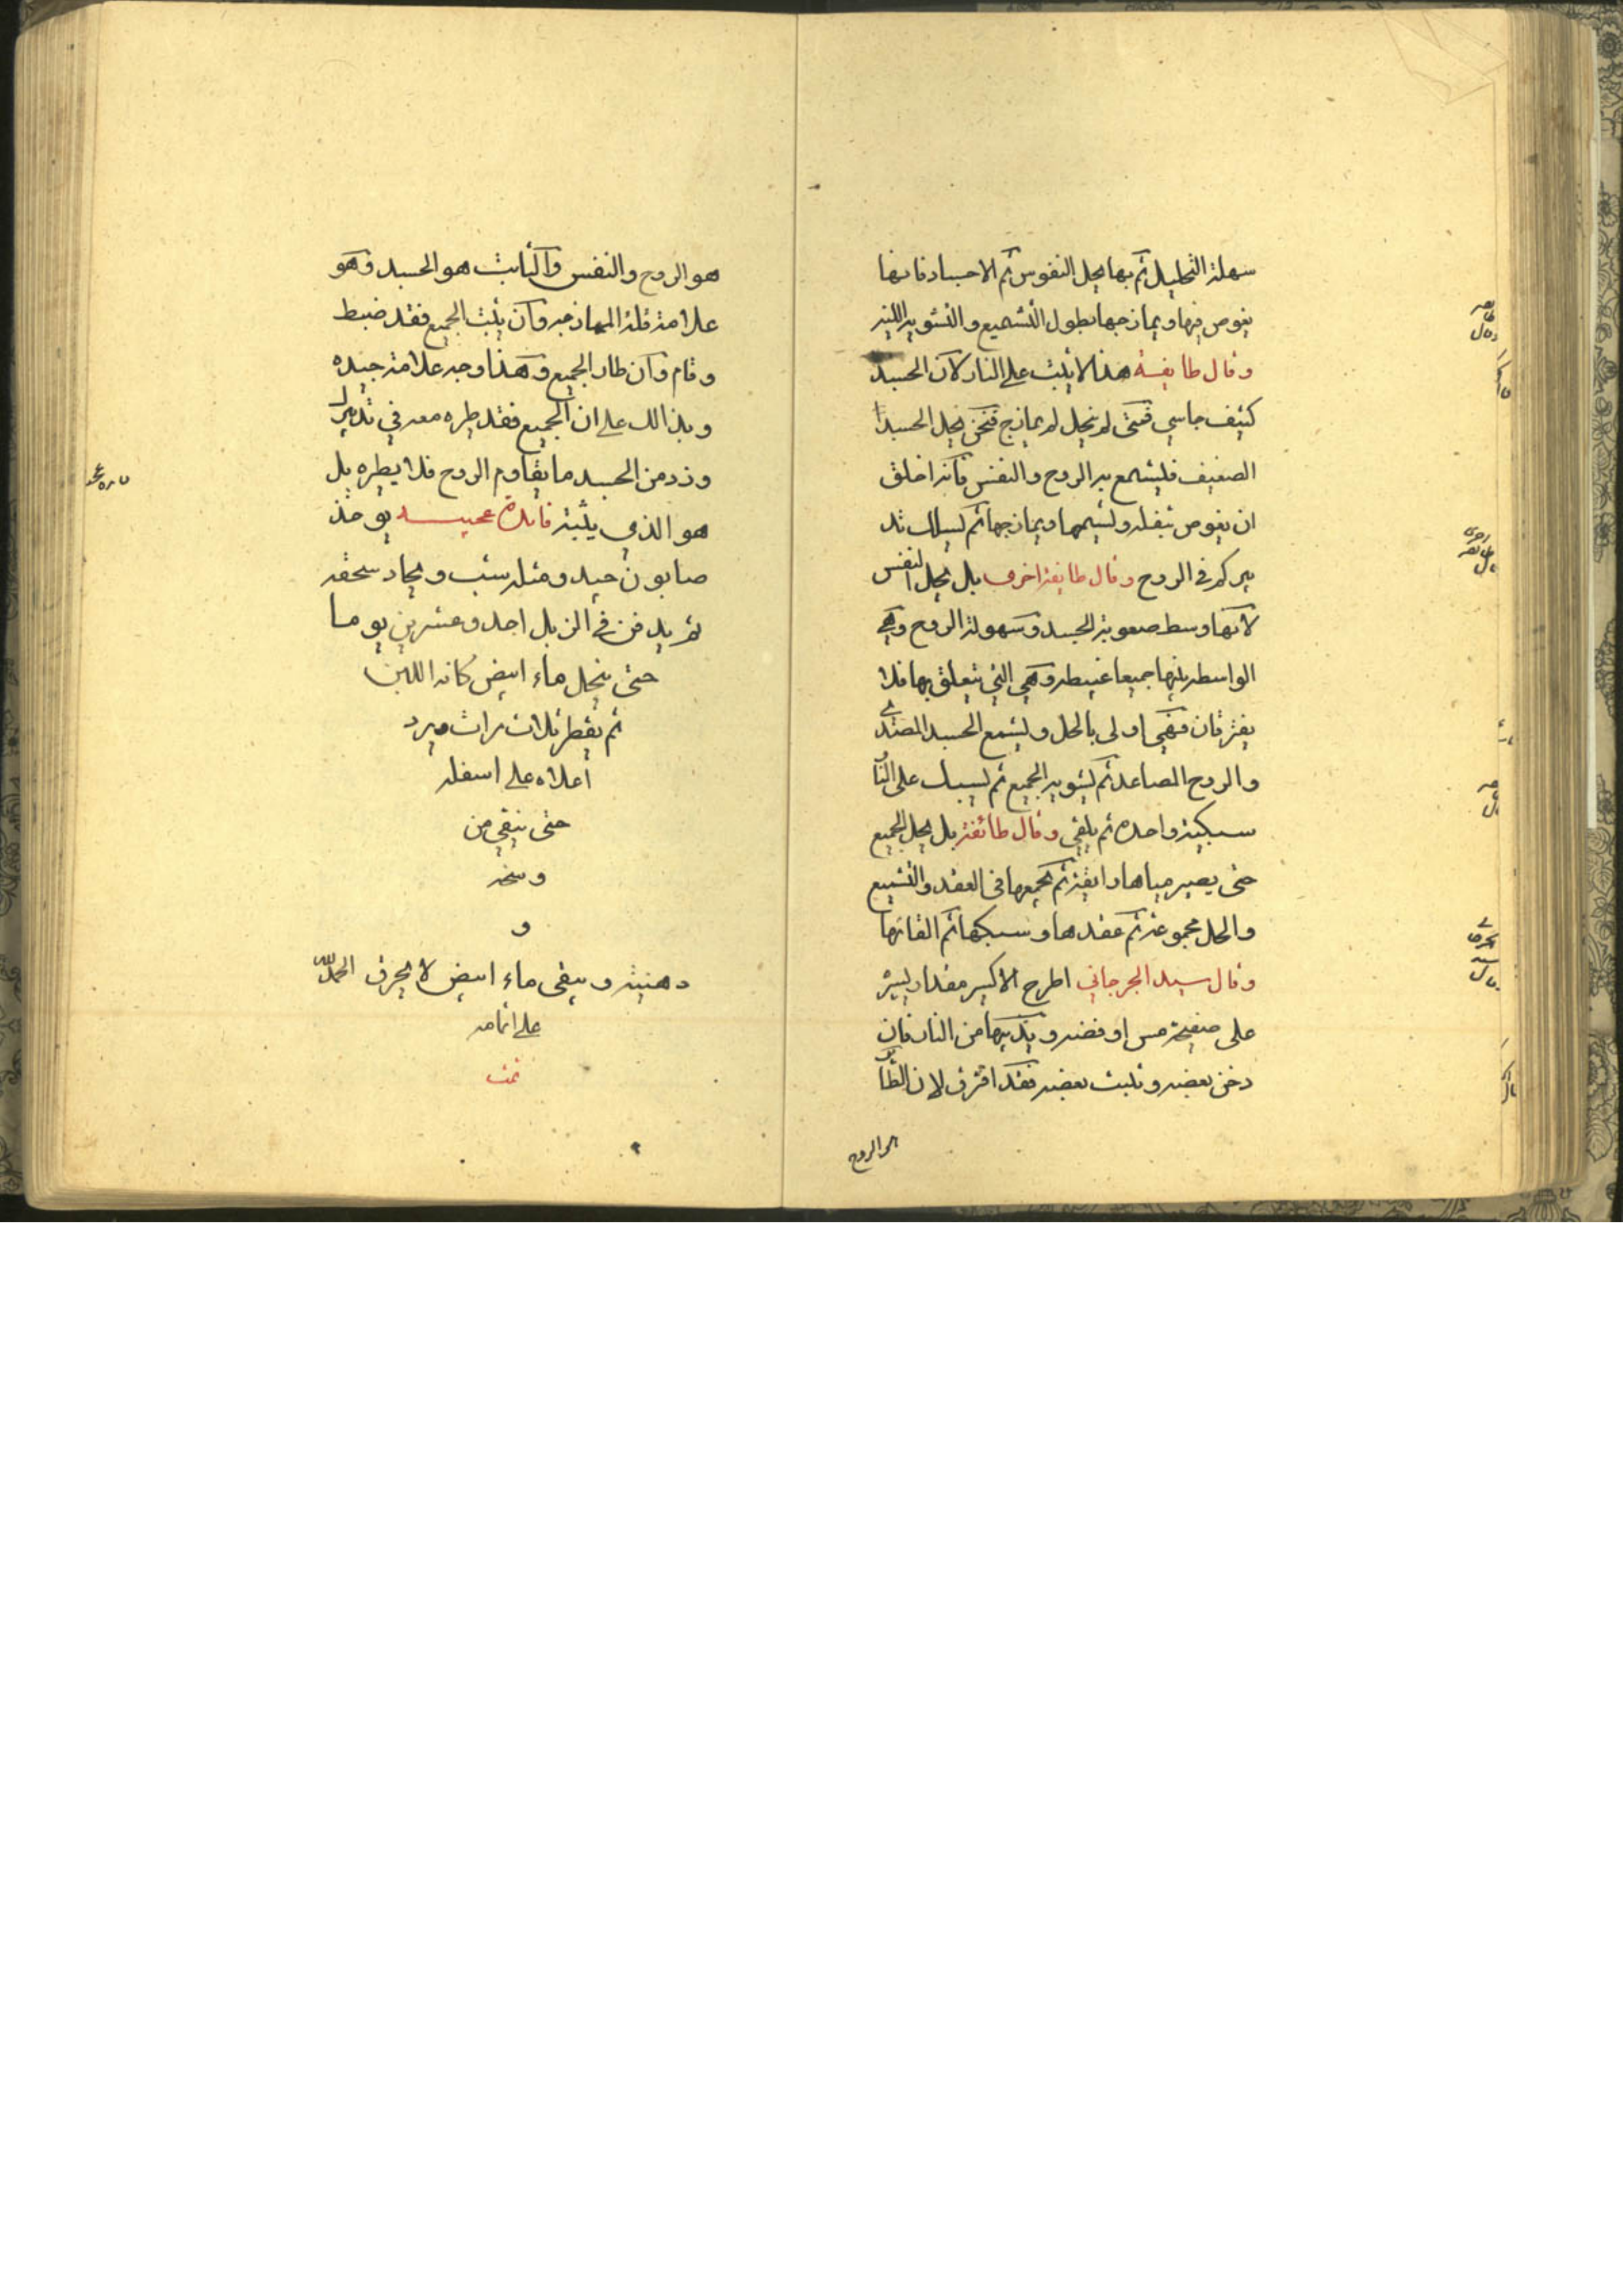 سهلة التحليل ثم بها يحل النفوس ثم الاجساد فانها
يغوص فيها ويمازجها بطول التشميع والتشويه اللينه
وقال طايفة هذا لا يثبت على النار لان الجسد
كثيف جاسي فمتى لم ينحل لم يمازج فنحن نحل الجسد
الصفيف فليشمع به الروح والنفس فانه اخلق
ان يغوص بثقله ولشيمها ويمازجها ثم لسالك تد
بيركم في الروح وقال طايفة اخرى بل يحل النفس
لانها وسط صعوبة الجسد وسهولة الروح وهي
الواسطه بينها جميعا وهي التي تتعلق بها فلا
يفترقان فهي اولى بالحل ويشمع الجسد المصدى
والروح الصاعد ثم يشويه الجميع ثم يسبك على النا
سبيكة واحده ثم يلقى وقال طائفة بل يحل الجميع
حتى يصير مياها رايقة ثم يجمعها في العقد والتشميع
والحل مجموعة ثم عقدها وسبكها ثم القائها
وقال سيد الجرجاني اطرح الاكسير مقدار يسير
على صفيحة مس او فضه و من النار فان
دخن بعضه وثبت بعضه فقد افترق لان الطا
الروح
هو الروح والنفس والثابت هو الجسد وهو
علامة قلة الممازجه وان يثبت الجميع فقد ضبط
وقام وان طار الجميع وهذا وجه علامة جيده
وبذالك على ان الجميع فقد طيره معه في تدبيرك
وزد من الجسد ما يقاوم الروح فلا يطيره بل
هو الذي يثبته فايدة عجيبه يوخذ
صابون جيد ومثله شب ويجاد سحقه
ثم يدفن في الزبل احد وعشرين يوما
حتى ينحل ماء ابيض كانه اللبن
ثم يقطر ثلاث مرات ويرد
اعلاه على اسفله
حتى ينقي من
وسخه
و
دهنيته ويبقى ماء ابيض لا يحرق الحمد لله
على اتمامه
تمت